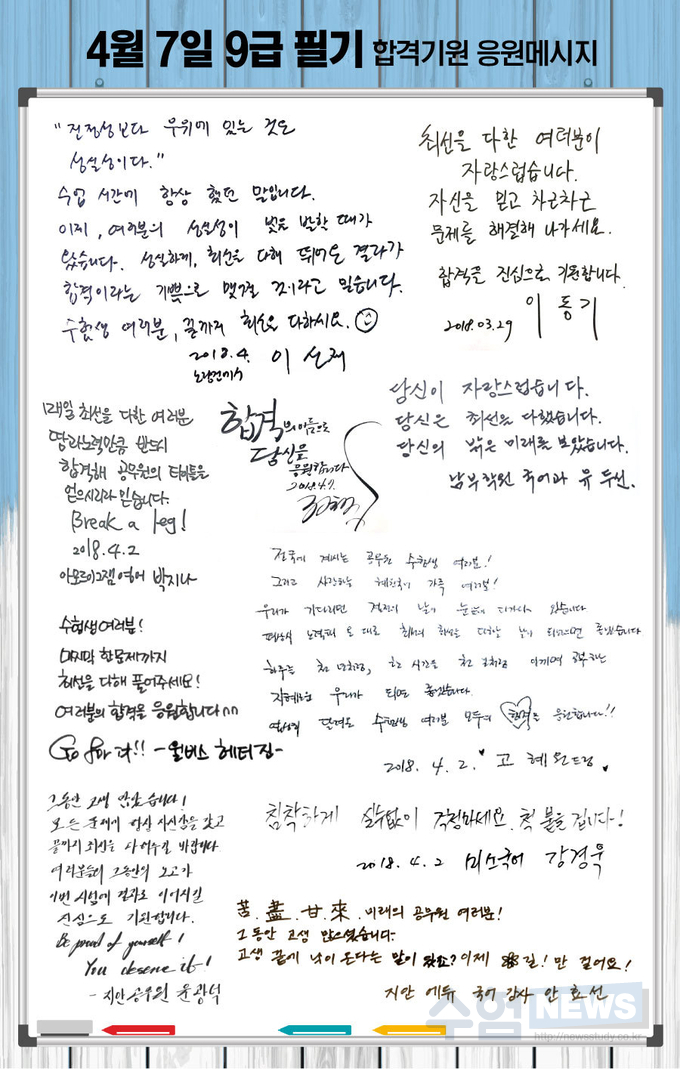 4월 7일 9급 필기 합격기원 응원메시지
"전정성보다 우위에 있는 것은
성실성이다."
수업 시간에 항상 했던 말입니다.
이제, 여러분의 성실성이 빛을 발할 때가
왔습니다. 성실하게, 최선을 다해 뛰어온 결과가
합격이라는 기쁨으로 맺힐 것이라고 믿습니다.
수험생 여러분, 끝까지 최선을 다하세요.
2018.4.
이선재
최선을 다한 여러분이
자랑스럽습니다.
자신을 믿고 차근차근
문제를 해결해 나가세요.
합격을 진심으로 기원합니다.
2018.03.29 이동기
1년 365일 최선을 다한 여러분
땀과 노력만큼 반드시
합격해 공무원의 타이틀을
얻으시리라 믿습니다.
Break a leg!
2018.4.2
아모르이그잼 영어 박지나
합격의 이름으로
당신을
응원합니다
2018.4.1.
당신이 자랑스럽습니다.
당신은 최선을 다했습니다.
당신의 밝은 미래를 보았습니다.
남부학원 국어과 유두선.
전국에 계시는 공무원 수험생 여러분!
그리고 사랑하는 혜원국어 가족 여러분!
우리가 기다리던 결전의 날이 눈앞에 다가와 있습니다
평상시 노력한 것 대로 최대의 최선을 다하는 날이 되었으면 좋겠습니다
하루는 천 만처럼, 한 시간은 천 금처럼 아끼며 공부하는
지혜로운 우리가 되면 좋겠습니다.
수험생 여러분 모두의 합격을 응원합니다!!
2018. 4. 2. 고혜원드림
수험생 여러분!
마지막 한 문제까지
최선을 다해 풀어주세요!
여러분의 합격을 응원합니다^^
Go for it!! -윌비스 헤더진-
그동안 고생 많았습니다!
모든 문제에 항상 자신감을 갖고
끝까지 최선을 다해주길 바랍니다
여러분들의 그동안의 노고가
이번 시험에 결과로 이어지길
진심으로 기원합니다.
Be proud of yourself!
You deserve it!
- 지안공무원 윤광석
침착하게 실수없이 걱정마세요. 척 붙을 겁니다!
2018. 4. 2 미소국어 강경욱
苦.盡.甘.來. 미래의 공무원 여러분!
그동안 고생 많으셨습니다.
고생 끝에 낙이 온다는 말이 있죠? 이제 꽃길!만 걸어요!
지안에듀 국어 강사 안효선
수험NEWS
http://newsstudy.co.kr